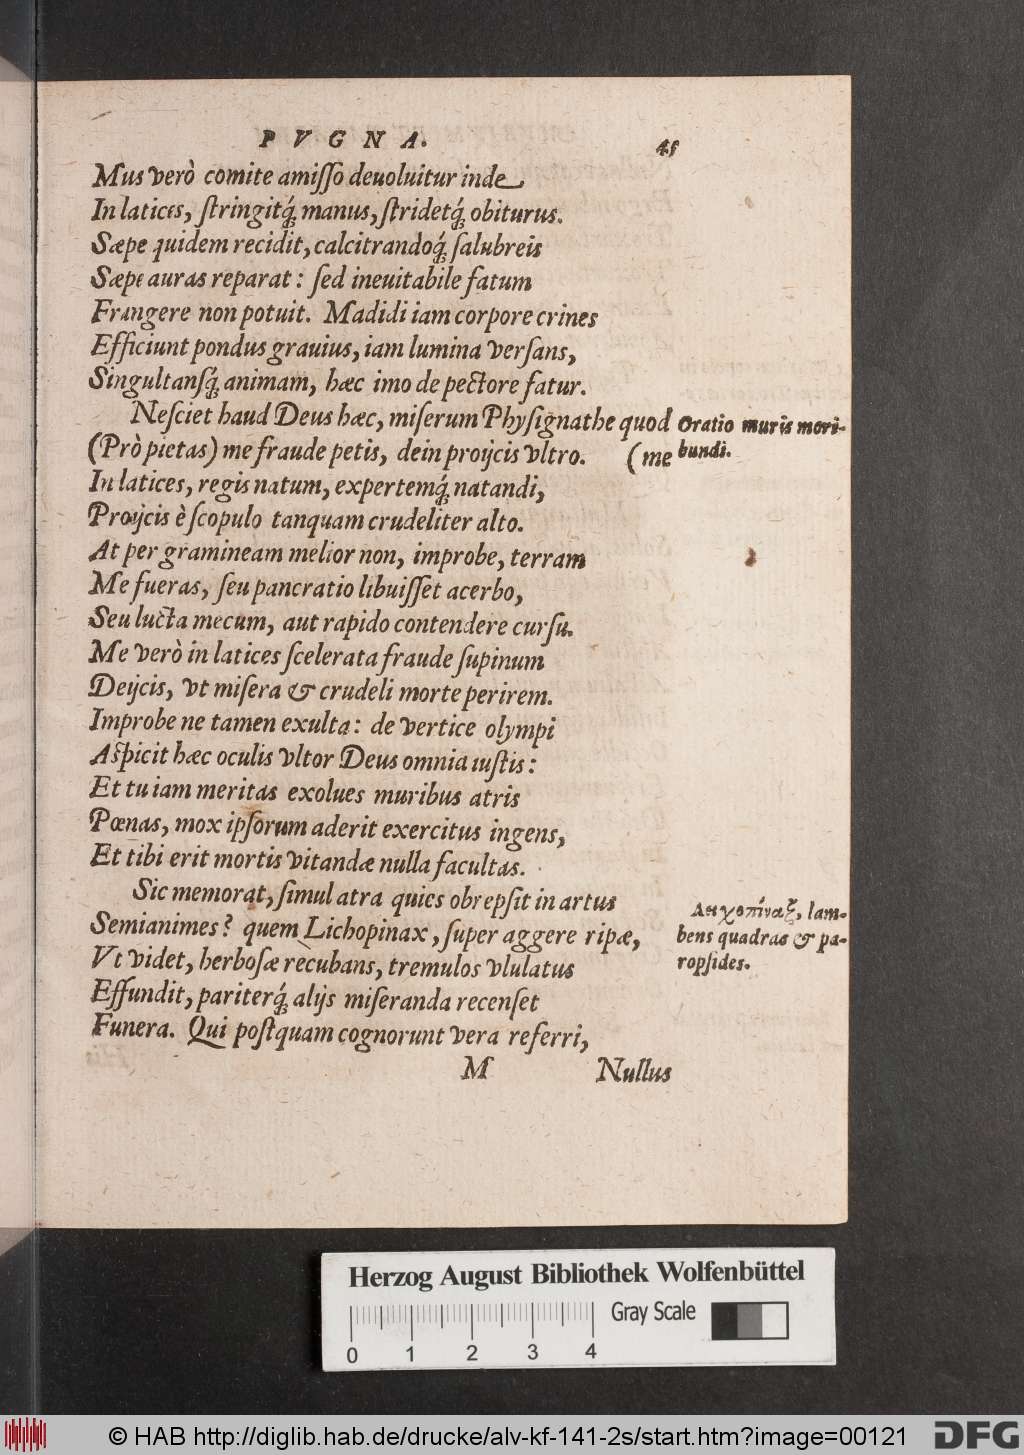 PVGNA. 45
Mus verò comite amiſſo deuoluitur inde
In latices, ſtringitq́; manus, ſtridetq́; obiturus.
Sæpe quidem recidit, calcitrandoq́; ſalubreis
Sæpe auras reparat: ſed ineuitabile fatum
Frangere non potuit. Madidi iam corpore crines
Efficiunt pondus grauius, iam lumina verſans,
Singultanſq́; animam, hæc imo de pectore fatur.
Neſciet haud Deus hæc, miſerum Phyſignathe quod
(me
Oratio muris mori-
bundi.
(Prò pietas) me fraude petis, dein proijcis vltro.
In latices, regis natum, expertemq́; natandi,
Proijcis è ſcopulo tanquam crudeliter alto.
At per gramineam melior non, improbe, terram
Me fueras, ſeu pancratio libuiſſet acerbo,
Seu lucta mecum, aut rapido contendere curſu.
Me verò in latices ſcelerata fraude ſupinum
Deijcis, vt miſera & crudeli morte perirem.
Improbe ne tamen exulta: de vertice olympi
Aſpicit hæc oculis vltor Deus omnia iuſtis:
Et tu iam meritas exolues muribus atris
Pœnas, mox ipſorum aderit exercitus ingens,
Et tibi erit mortis vitandæ nulla facultas.
Sic memorat, ſimul atra quies obrepſit in artus
Semianimes? quem Lichopinax, ſuper aggere ripæ,
Vt videt, herboſæ recubans, tremulos vlulatus
Effundit, pariterq́; alijs miſeranda recenſet
Funera. Qui poſtquam cognorunt vera referri,
lam-
bens quadras & pa-
ropſides.
M Nullus
Herzog August Bibliothek Wolfenbüttel
Gray Scale
0 1 2 3 4
© HAB http://diglib.hab.de/drucke/alv-kf-141-2s/start.htm?image=00121
DFG